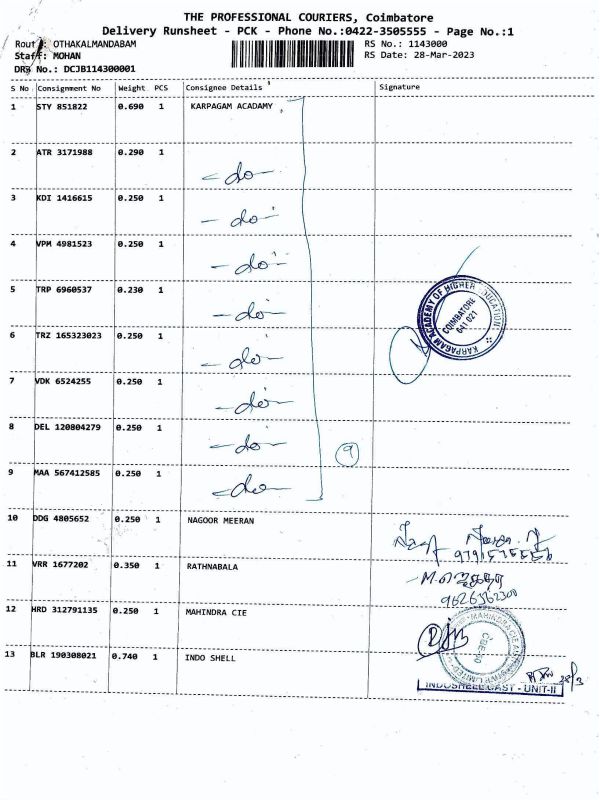 THE PROFESSIONAL COURIERS, Coimbatore
Delivery Runsheet - PCK - Phone No.:0422-3505555 - Page No.:1
Route: OTHAKALMANDABAM RS No.: 1143000
Staff: MOHAN RS Date: 28-Mar-2023
DRS No.: DCJB114300001
S No Consignment No Weight PCS Consignee Details Signature
1 STY 851822 0.690 1 KARPAGAM ACADAMY
2 ATR 3171988 0.290 1 -do-
3 KDI 1416615 0.250 1 -do-
4 VPM 4981523 0.250 1 -do-
5 TRP 6960537 0.230 1 -do-
KARPAGAM ACADEMY OF HIGHER EDUCATION
COIMBATORE
641 021
6 TRZ 165323023 0.250 1 -do-
7 VDK 6524255 0.250 1 -do-
8 DEL 120804279 0.250 1 -do-
9
9 MAA 567412585 0.250 1 -do-
10 DDG 4805652 0.250 1 NAGOOR MEERAN
11 VRR 1677202 0.350 1 RATHNABALA
12 HRD 312791135 0.250 1 MAHINDRA CIE
13 BLR 190308021 0.740 1 INDO SHELL
28/3
INDOSHELL CAST - UNIT-II